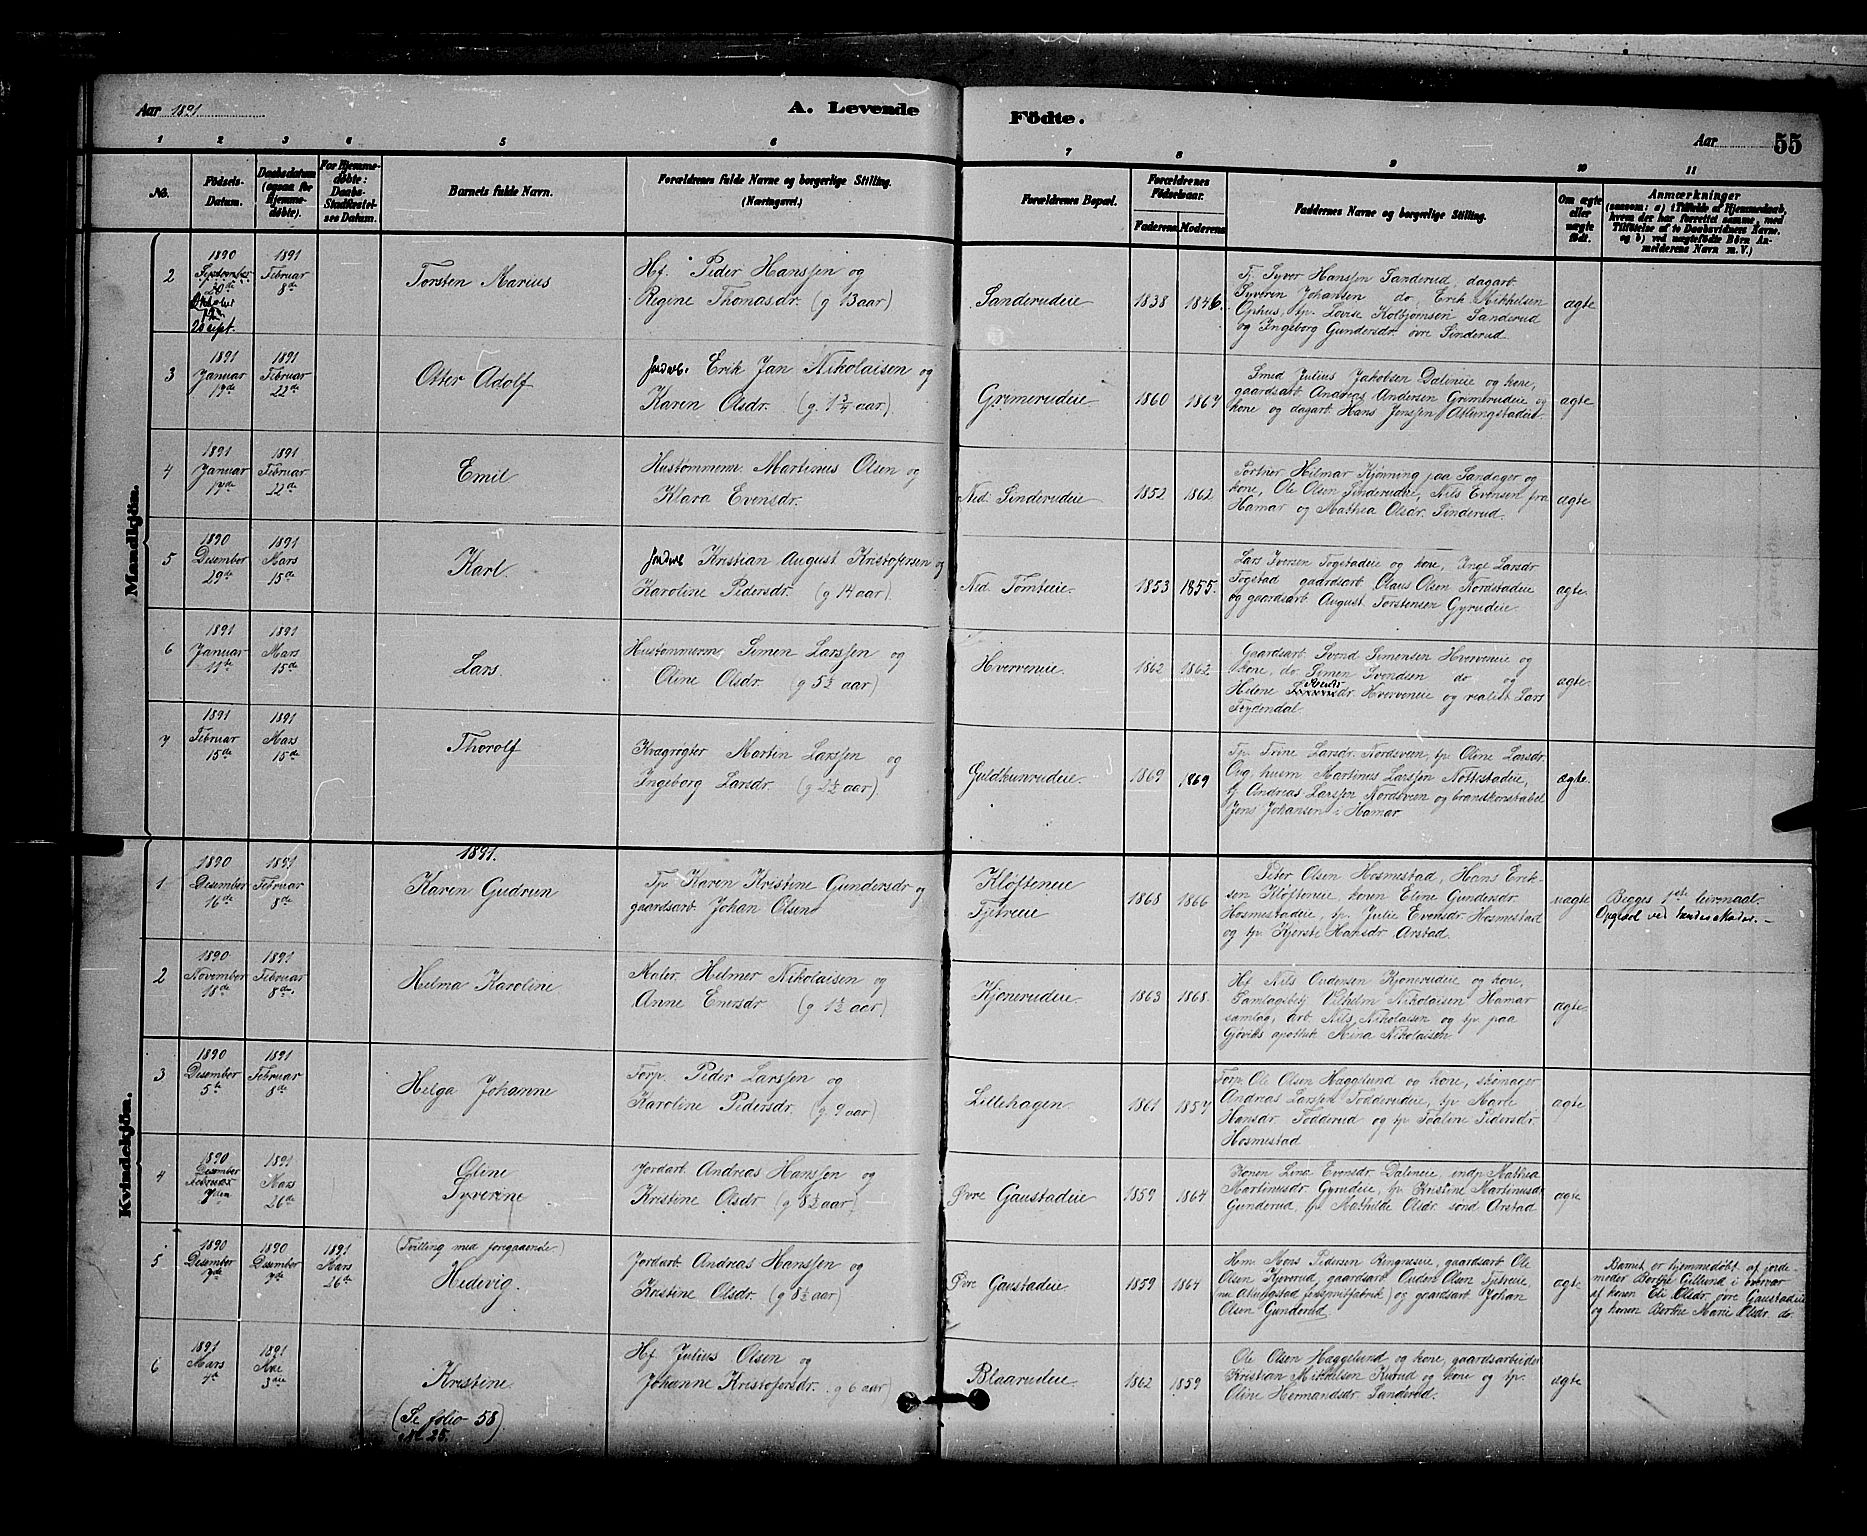 Aar 1891
A. Levende
Födte.
Aar 55
1 2 3 4 5 6 7 8 9 10 11
No.
Födsels-Datum.
Daabsdatum (ogsaa for Hjemmedöbte).
For Hjemmedöbte: Daabs-Stadfæstelses Datum.
Barnets fulde Navn.
Forældrenes fulde Navne og borgerlige Stilling. (Næringsvei.)
Forældrenes Bopæl.
Forældrenes Födselsaar.
Faderens Moderens
Faddernes Navne og borgerlige Stilling.
Om ægte eller uægte födt.
Anmærkninger
(saasom: a) i Tilfælde af Hjemmedaab, hvem der har forrettet samme, med Tilföielse af to Daabsvidners Navne, og b) ved uægtefödte Börn Anmelderens Navn m. V.)
Mandkjön.
2
1890
September
20de
Oktober
20 sept.
1891
Februar
8de
Torsten Marius
Hf. Peder Hanssen og
Regine Thomasdr. (g 13 aar)
Sanderudeie
1838 1846.
Tj. Syver Hanssen Sanderud, dagarb.
Syveren Johansen do, Erik Mikkelsen
Ophus, tp. Lovise Kolbjørnsen Sanderud
og Ingeborg Gundersdr. øvre Sinderud.
ægte
3
1891
Januar
17de
1891
Februar
22de
Otter Adolf
Jordarb. Erik Jan Nikolaisen og
Karen Olsdr. (g. 1 3/4 aar.)
Grimerudeie
1860 1867
Smed Julius Jakobsen Dalineie og kone,
gaardsarb. Andreas Andersen Grimerudeie og
kone og dagarb. Hans Jenssen Atlungstadeie.
ægte
4
1891
Januar
17de
1891
Februar
22de
Emil
Hustømmerm. Martinus Olsen og
Klara Evensdr.
Ned. Sinderudeie
1852 1862
Portner Hilmar Kjønning paa Sandager og
kone, Ole Olsen Sinderudeie, Nils Evensen fra
Hamar og Mathea Olsdr. Sinderud.
ægte
5
1890
Desember
29de
1891
Mars
15de
Karl.
Jordarb. Kristian August Kristofersen og
Karoline Pedersdr. (g 14 aar)
Ned. Tomteie.
1853 1855.
Lars Iversen Fogstadeie og kone, Inge Larsdr
Fogstad gaardsarb. Olaus Olsen Nordstadeie
og gaardsarb. August Torstensen Gyrudeie.
ægte.
6
1891
Januar
11te
1891
Mars
15de
Lars.
Hustømmerm. Simen Larssen og
Oline Olsdr. (g 5½ aar)
Hverveneie
1862 1862
Gaardsarb. Svend Simensen Hverveneie og
kone, do. Simen Svendsen do og
Helene dr. Hverveneie og realist Lars
Frydendal.
ægte.
7
1891
Februar
15de
1891
Mars
15de
Thorolf
Kvægrøgter Martin Larssen og
Ingeborg Larsdr. (g 2½ aar)
Guldbunrudeie
1869 1869
Tp. Trine Larsdr. Nordsveen, tp. Oline Larsdr.
Ovg, husm Martinus Larssen Nottestadeie,
tj. Andreas Larssen Nordsveen og brandkonstabel
Jens Johansen i Hamar.
ægte.
Kvindekjön.
1891.
1
1890
Desember
16de
1891
Februar
8de
Karen Gudrun
Tp. Karen Kristine Gundersdr og
gaardsarb. Johan Olsen
Kløfteneie
Tjetreeie
1868 1866
Peter Olsen Hosmestad, Hans Erik-
sen Kløfteneie, konen Eline Gundersdr
Hosmestadeie, tp. Julie Evensdr Hosmestad
og tp. Kjersti Hansdr. Arstad.
uægte
Begges 1ste leiermaal.
Opgivet ved barnets Moder.
2
1890
November
18de
1891
Februar
8de.
Helma Karoline
Maler Helmer Nikolaisen og
Anne Enersdr (g 1½ aar)
Kjonerudeie
1863 1868.
Hf Nils Ovdersen Kjonerudeie og kone,
Samlagsbestj. Vilhelm Nikolaisen Hamar
samlag, arb. Nils Nikolaisen og tp. paa
Gjøviks apothek Mina Nikolaisen.
ægte.
3
1890
Desember
5te
1891
Februar
8de
Helga Johanne
Torp. Peder Larssen og
Karoline Pedersdr. (g 9 aar)
Lillehagen
1861 1857
Torp. Ole Olsen Haggelund og kone, skomager
Andreas Larssen Fodderudeie, tp Marte
Hansdr. Fodderud og tp. Toaline Pedersdr.
Hosmestad.
ægte
4
1890
Desember
Februar
7den
1891
Mars
26de
Oline
Syverine
Jordarb. Andreas Hanssen og
Kristine Olsdr. (g 8½ aar)
Øvre Gaustadeie
1859 1864
Konen Lina Evensdr. Dalineie, indp. Mathea
Martinusdr. Gyrudeie, tp. Kristine Martinusdr
Gunderud, tp. Mathilde Olsdr. sønd Arstad
ægte
5
1890
Desember
7de
1890
Desember
7de
1891
Mars
26de
(Tvilling med foregaaende)
Hedevig.
Jordarb Andreas Hanssen og
Kristine Olsdr. (g 8½ aar)
Øvre Gaustadeie.
1859 1864
Hm. Mons Pedersen Ringneseie, gaardsarb. Ole
Olsen Kjoverud, gaardsarb. Ouden Olsen Tjetreeie
(nu Atlungstad fedespritfabrik) og gaardsarb. Johan
Olsen Gunderud
ægte
Barnet er hjemmedøbt af jorde-
moder Berthe Gillund i overvær
af konen Eli Olsdr. øvre Gaustadeie
og konen Berthe Marie Olsdr. do.
6
1891
Mars
4de
1891
Mai
3die
Kristine.
(Se folio 58)
No 25.
Hf. Julius Olsen og
Johanne Kristofersdr. (g 6 aar)
Blaarudeie.
1862 1859
Ole Olsen Haggelund og kone, gaardsarbeider
Kristian Mikkelsen Kurud og kone og tp.
Oline Hermandsdr. Sanderud.
ægte